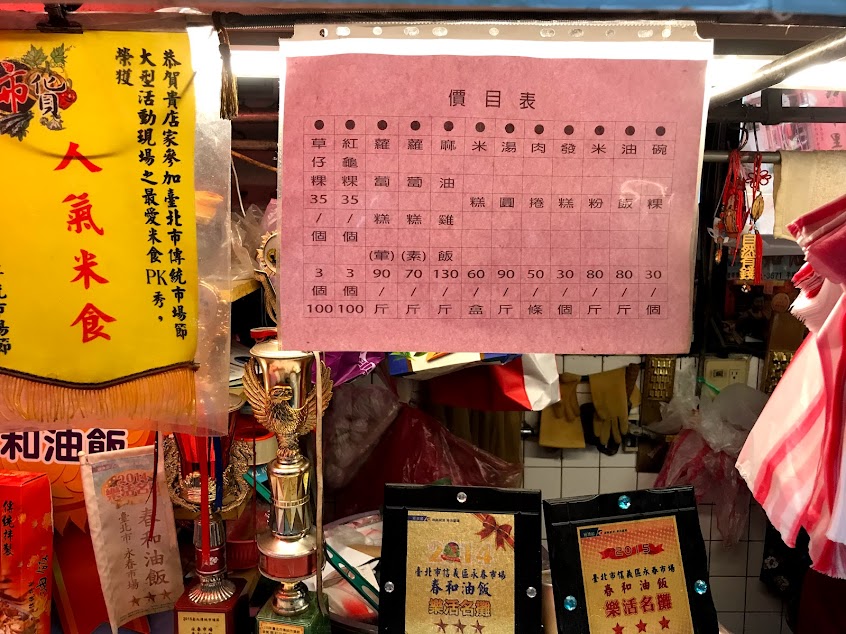 恭賀貴店家參加臺北市傳統市場節
大型活動現場之最愛米食PK秀，
榮獲
人氣米食
價目表
草仔粿35/個 3個100
紅龜粿35/個 3個100
蘿蔔糕(葷)90/斤
蘿蔔糕(素)70/斤
麻油雞飯130/斤
米糕60/盒
湯圓90/斤
肉捲50/條
發糕30/個
米粉80/斤
油飯80/斤
碗粿30/個
和油飯
傳統拌製
臺北市永春市場
春和油飯
★★★
2014
臺北市信義區永春市場
春和油飯
樂活名攤
★★★
2015
臺北市信義區永春市場
春和油飯
樂活名攤
★★★
自然有錢